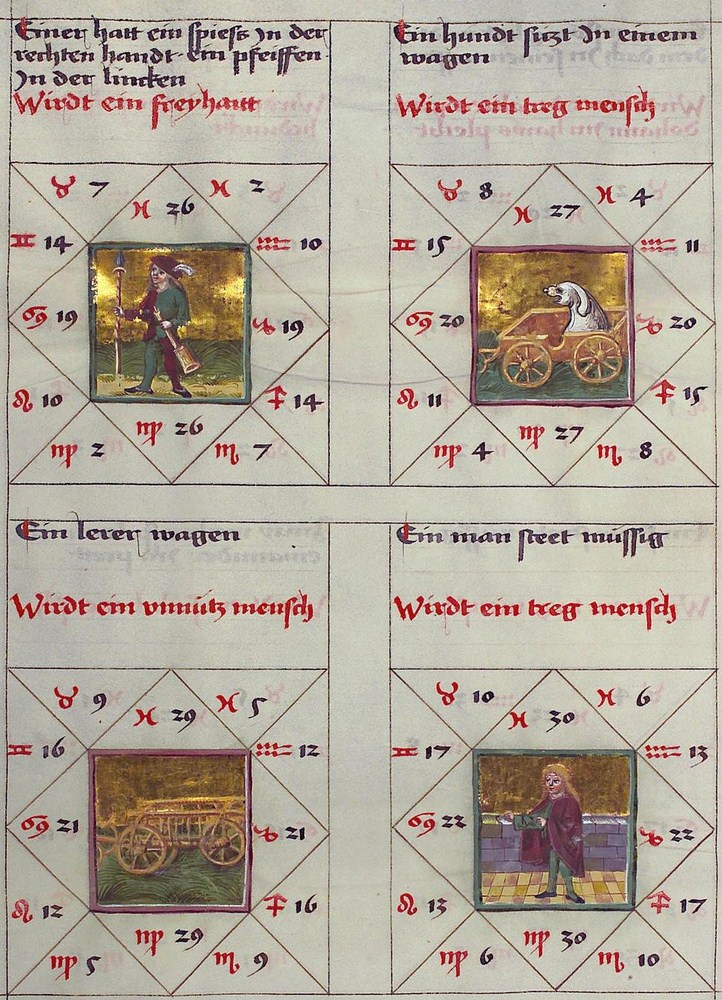 Einer hatt ein spiess Jn der
rechten handt ein pfeiffen
Jn der lincken
Wirdt ein freyhart
♉ 7
♓ 26
♓ 2
♊ 14
♒ 10
♋ 19
♑ 19
♌ 10
♐ 14
♍ 2
♍ 26
♏ 7
Ein hundt sitzt Jn einem
wagen
Wirdt ein treg mensch
♉ 8
♓ 27
♓ 4
♊ 15
♒ 11
♋ 20
♑ 20
♌ 11
♐ 15
♍ 4
♍ 27
♏ 8
Ein lerer wagen
Wirdt ein vnnütz mensch
♉ 9
♓ 29
♓ 5
♊ 16
♒ 12
♋ 21
♑ 21
♌ 12
♐ 16
♍ 5
♍ 29
♏ 9
Ein man steet müssig
Wirdt ein treg mensch
♉ 10
♓ 30
♓ 6
♊ 17
♒ 13
♋ 22
♑ 22
♌ 13
♐ 17
♍ 6
♍ 30
♏ 10